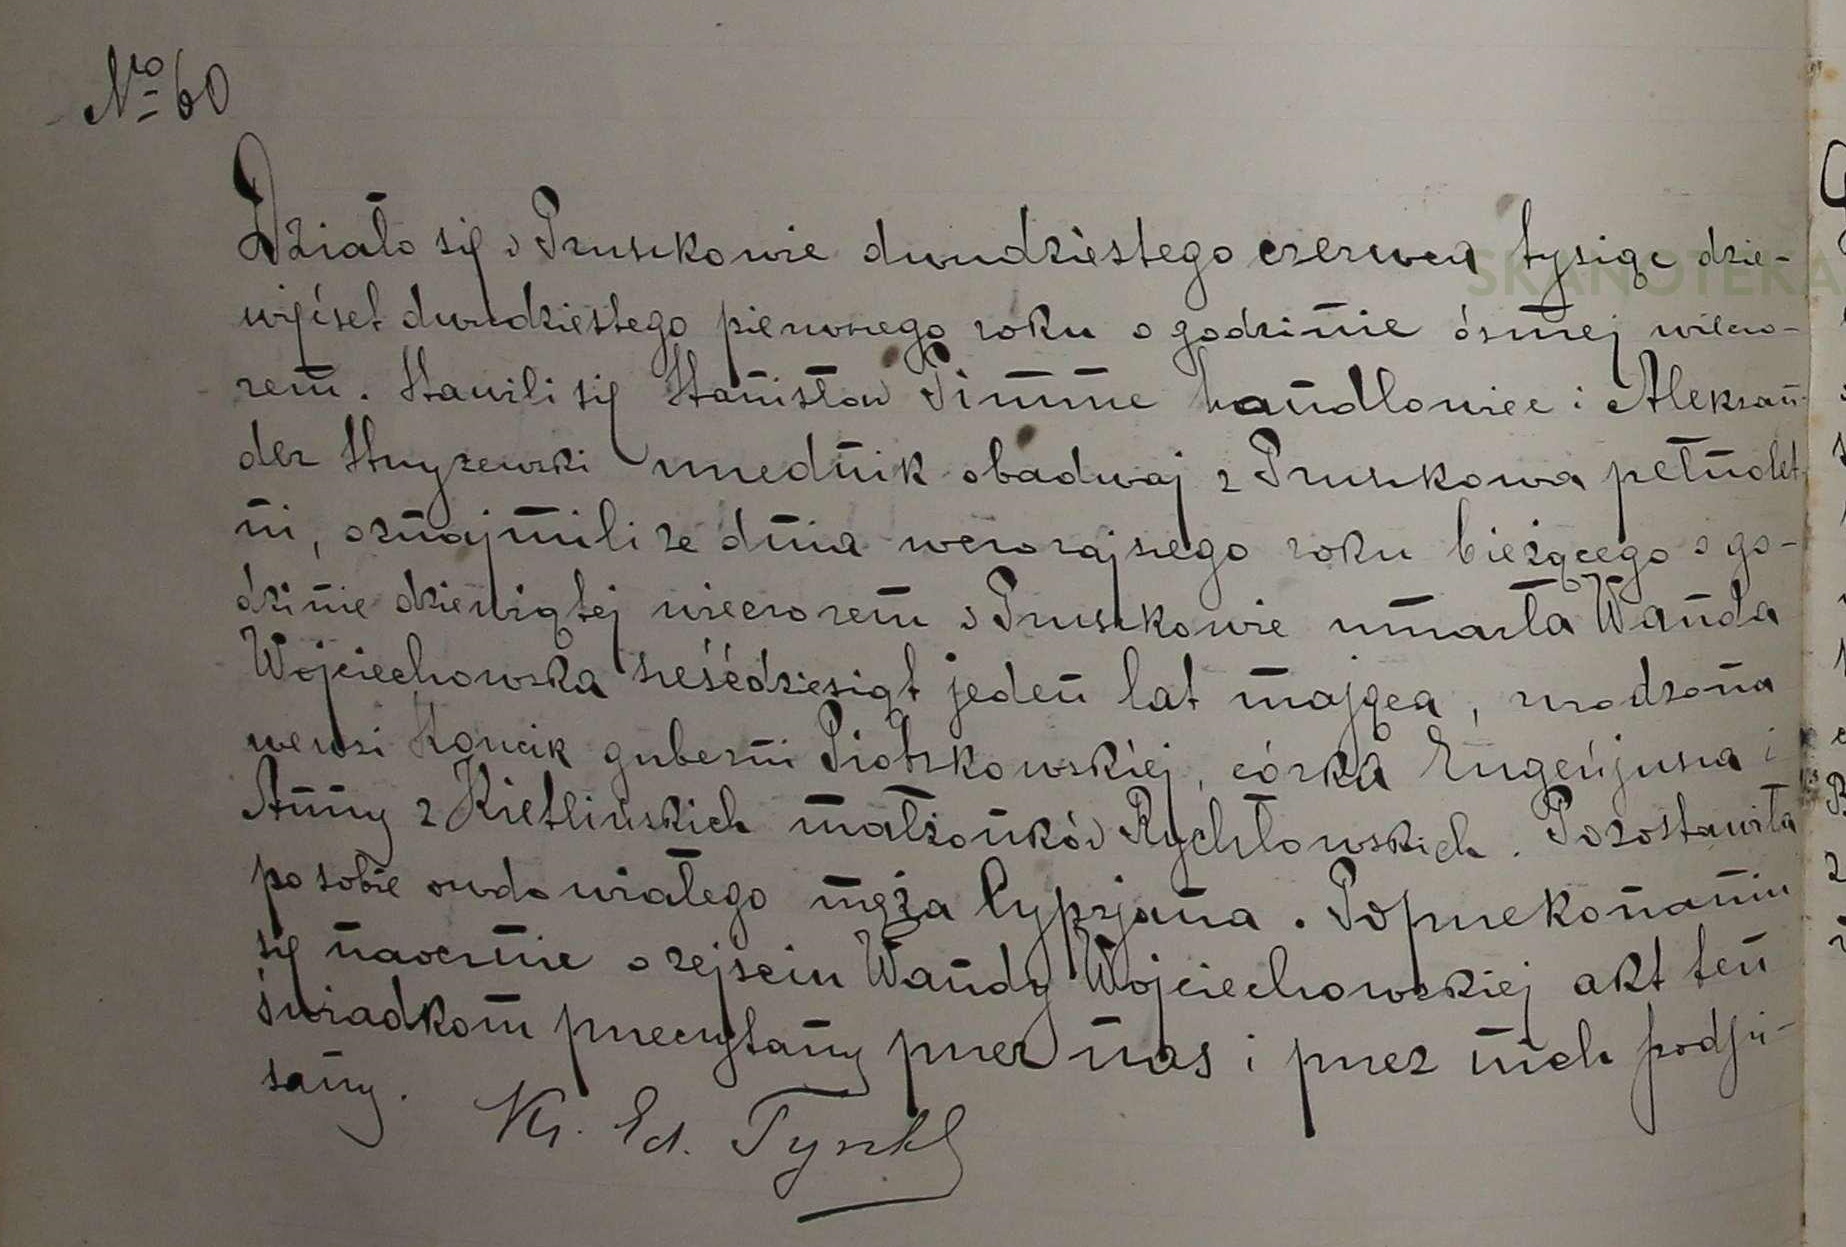 № 60
Działo się w Pruszkowie dwudziestego czerwca tysiąc dzie-
więćset dwudziestego pierwszego roku o godzinie ósmej wieczo-
rem. Stawili się Stanisław Timme handlowiec i Aleksan-
der urzednik obadwaj z Pruszkowa pełnolet-
ni, oznajmili ze dnia wczorajszego roku bieżącego o go-
dzinie dziewiątej wieczorem w Pruszkowie umarła Wanda
Wojciechowska sześćdziesiąt jeden lat mająca, urodzona
we wsi guberni Piotrkowskiej, córka Eugenjusza i
Anny z Kietlińskich małżonków Rychłowskich. Pozostawiła
po sobie owdowiałego męża Cyprjana. Po przekonaniu
się naocznie o zejściu Wandy Wojciechowskiej akt ten
świadkom przeczytany przez nas i przez nich podpi-
sany. Ks. Ed. Tyszka
SKANOTEKA